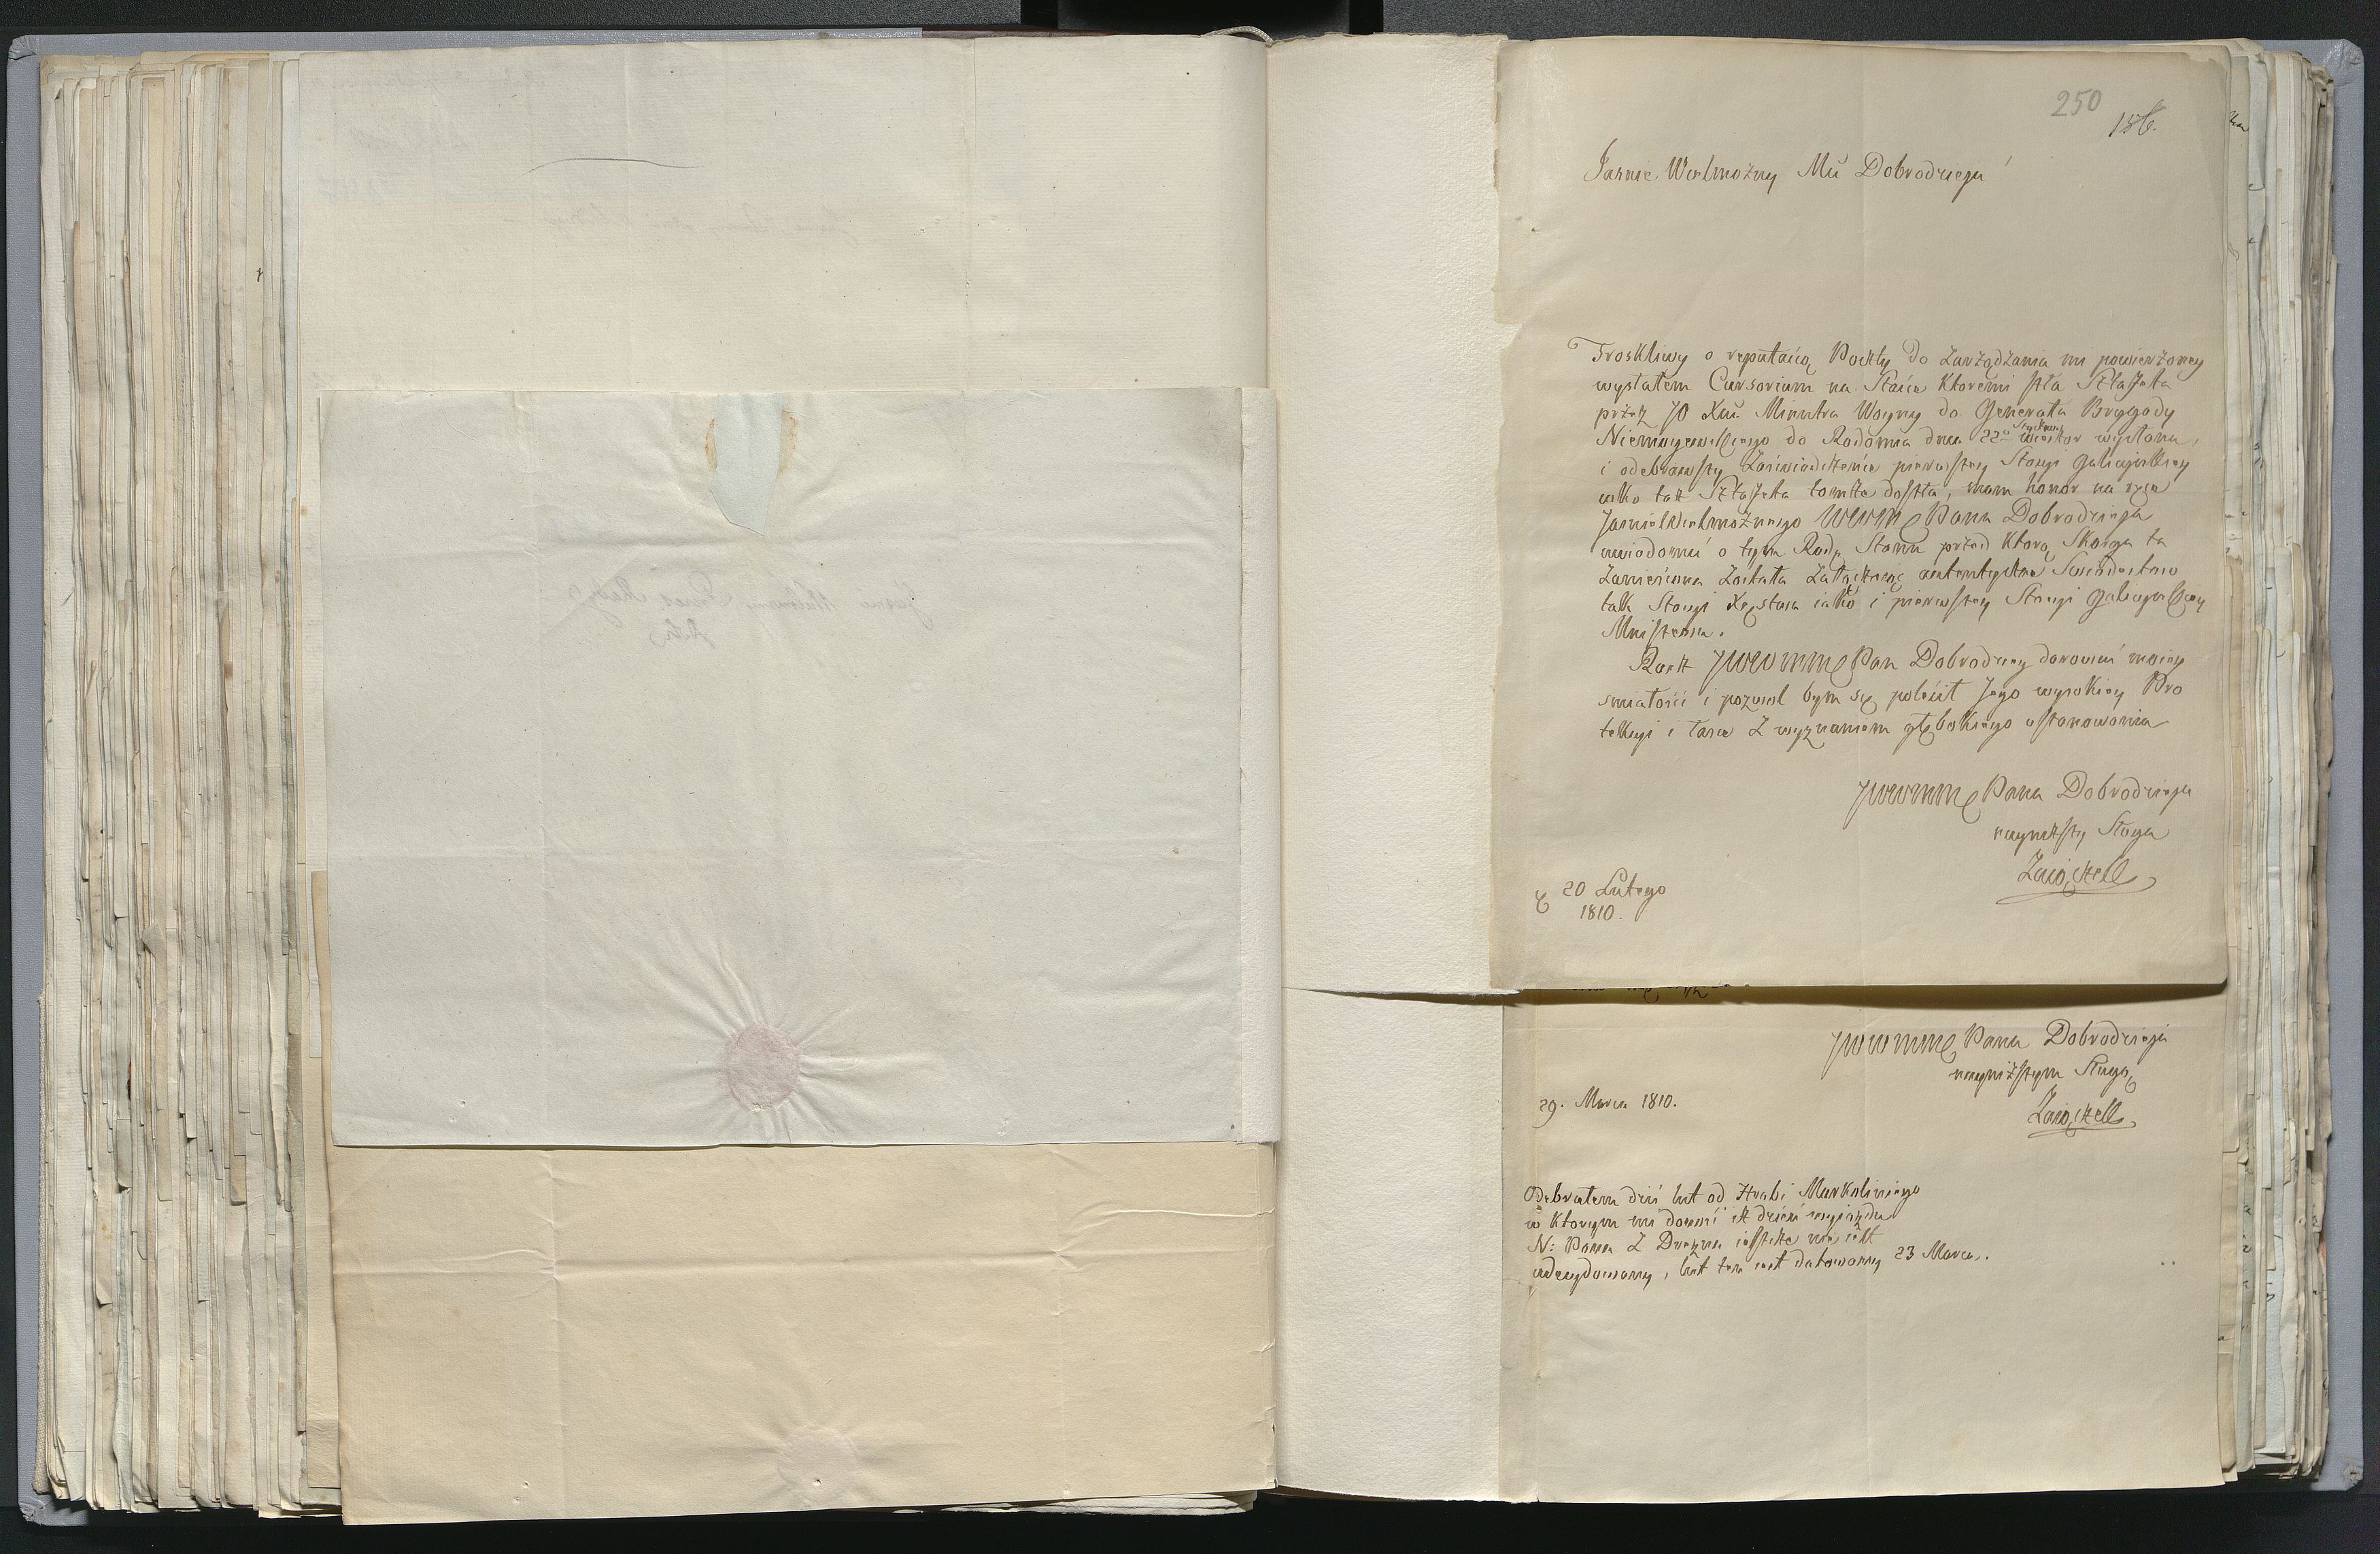 250
186.
Jasnie Wielmożny Mći Dobrodzieju
Troskliwy o reputaćią Poczty do Zarządzania mi powierzoney
wysłałem Cursorium na Staćie ktoremi szła Sztafeta
przez JO Xcia Ministra Woyny do Generała Brygady
Niemoyewskiego do Radomia dnia 22º Stycznia wysłana,
i odebrawszy Zaświadczenie pierwszey Stacyi Galicyiskiey
iako taż Sztafeta tamże doszła, mam honor na ręce
Jasnie Wielmożnego WWM Pana Dobrodzieja
uwiadomić o tym Radę Stanu przed ktorą Skarga ta
Zaniesiona Została Załączając autentyczne Swiadectwo
tak Stacyi Xięstwa iako i pierwszey Stacyi Galicyiskiey
Mniszewa.
Racz JWWMM Pan Dobrodziey darować moiey
smiałośći i pozwol bym się polećił Jego wysokiey Pro
tekcyi i łasce Z wyznaniem głębokiego uszanowania
JWWMM Pana Dobrodzieja
nayniższy Sługa
Zaiączek
20 Lutego
1810.
JWWMM Pana Dobrodzieja
nayniższym Sługą
Zaiączek
29. Marca 1810.
Odebrałem dziś list od Hrabi Markoliniego
w ktorym mi donosi iż dzień wyjazdu
N: Pana Z Drezna ieszcze nie iest
zdecydowany, list ten iest datowany 23 Marca.